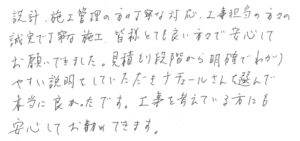 設計、施工管理の方の丁寧な対応、工事担当の方々の
誠実で丁寧な施工、皆様とても良い方々で安心して
お願いできました。見積り段階から明確でわかり
やすい説明をしていただきナチュールさんを選んで
本当に良かったです。工事を考えている方にも
安心してお勧めできます。